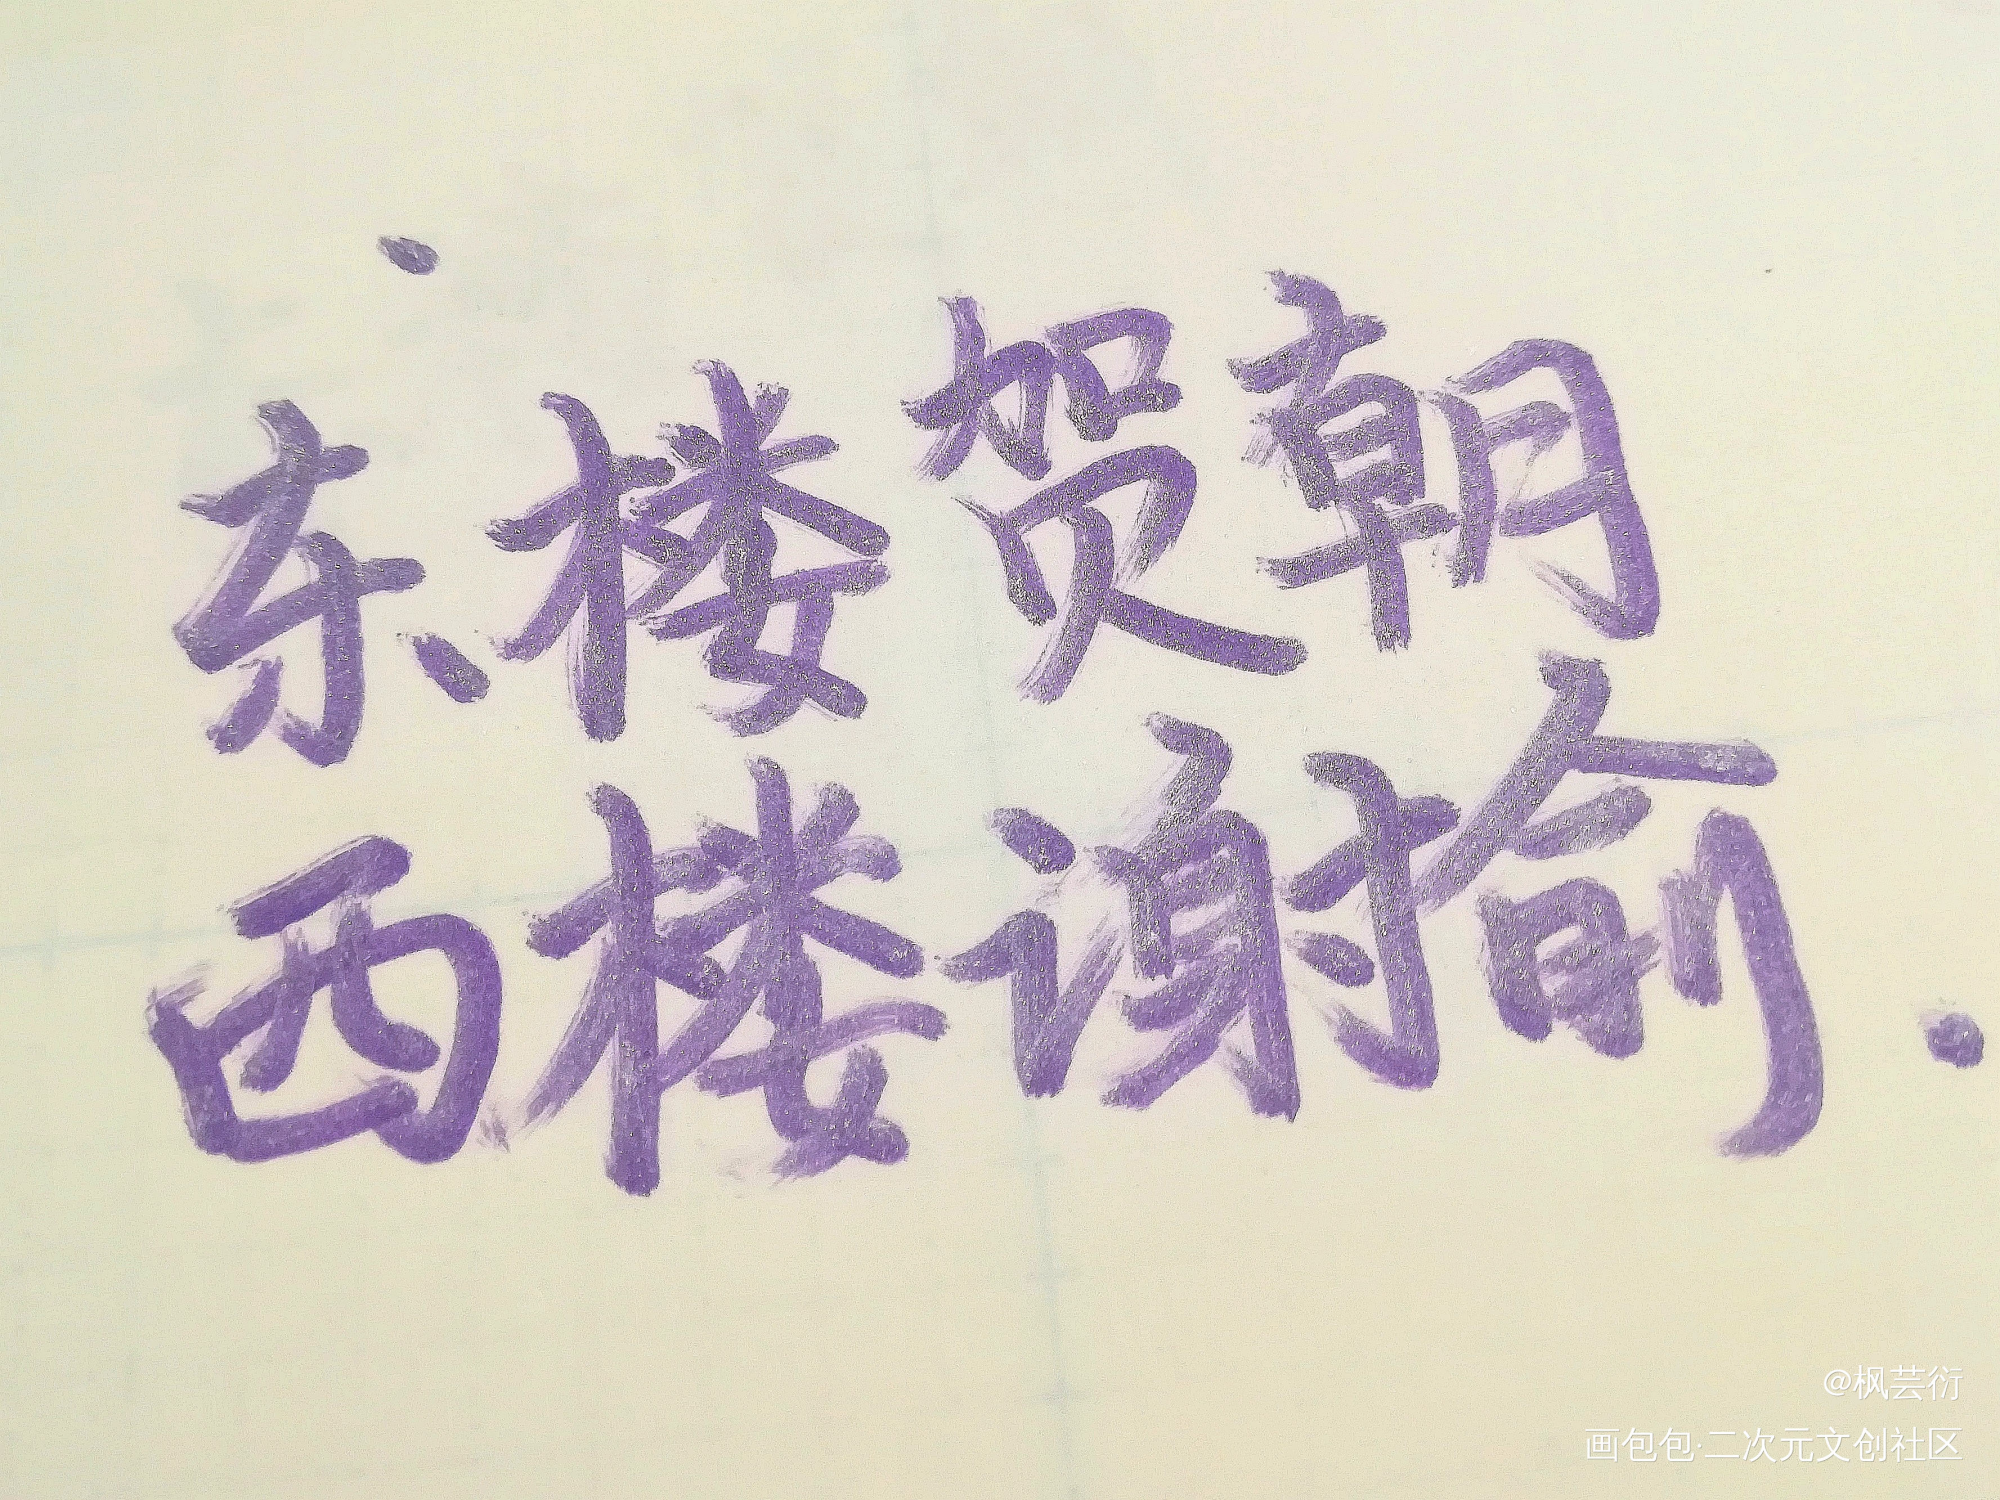 东楼贺朝
西楼谢俞
@枫芸衍
画包包·二次元文创社区